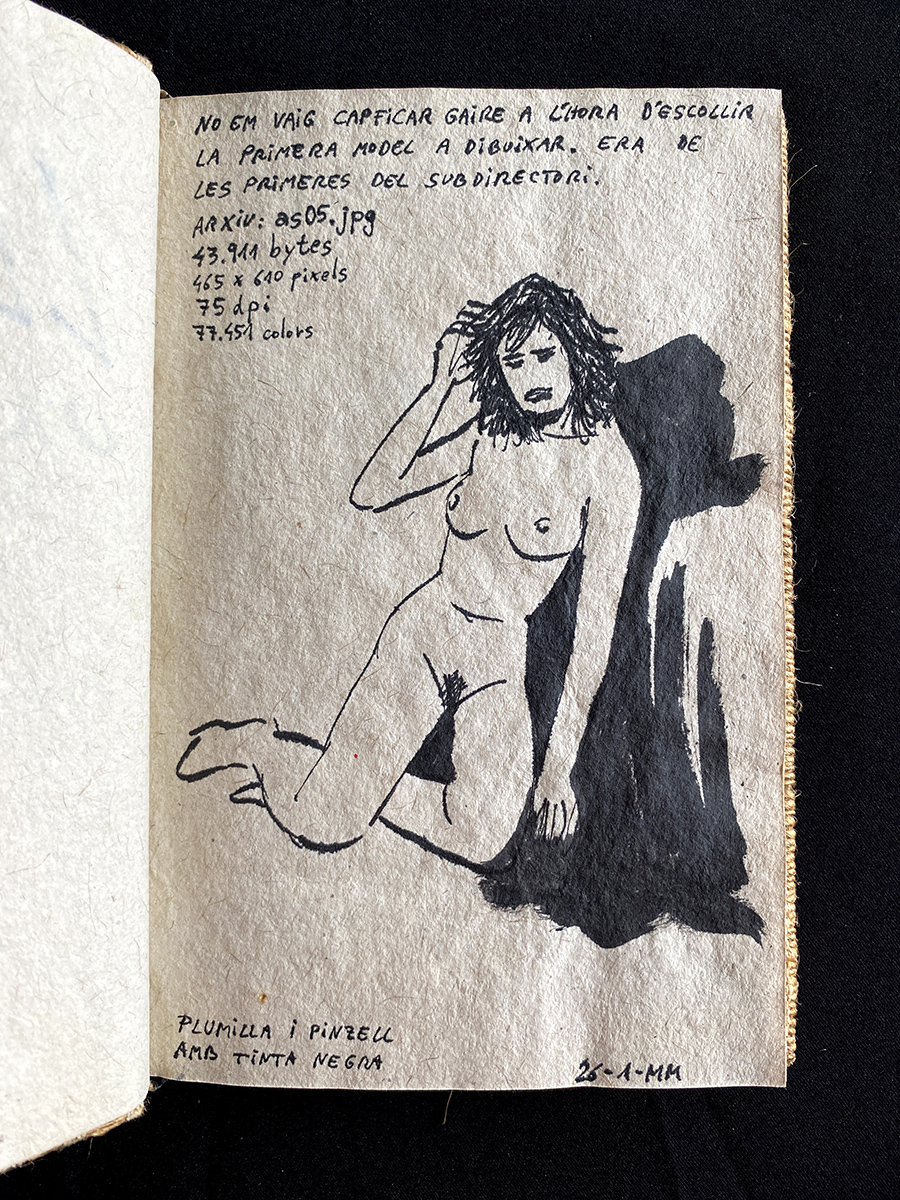 NO EM VAIG CAPFICAR GAIRE A L'HORA D'ESCOLLIR
LA PRIMERA MODEL A DIBUIXAR. ERA DE
LES PRIMERES DEL SUBDIRECTORI.
ARXIU: as05.jpg
43.911 bytes
465 x 610 pixels
75 dpi
77.451 colors
PLUMILLA I PINZELL
AMB TINTA NEGRA
26-1-MM